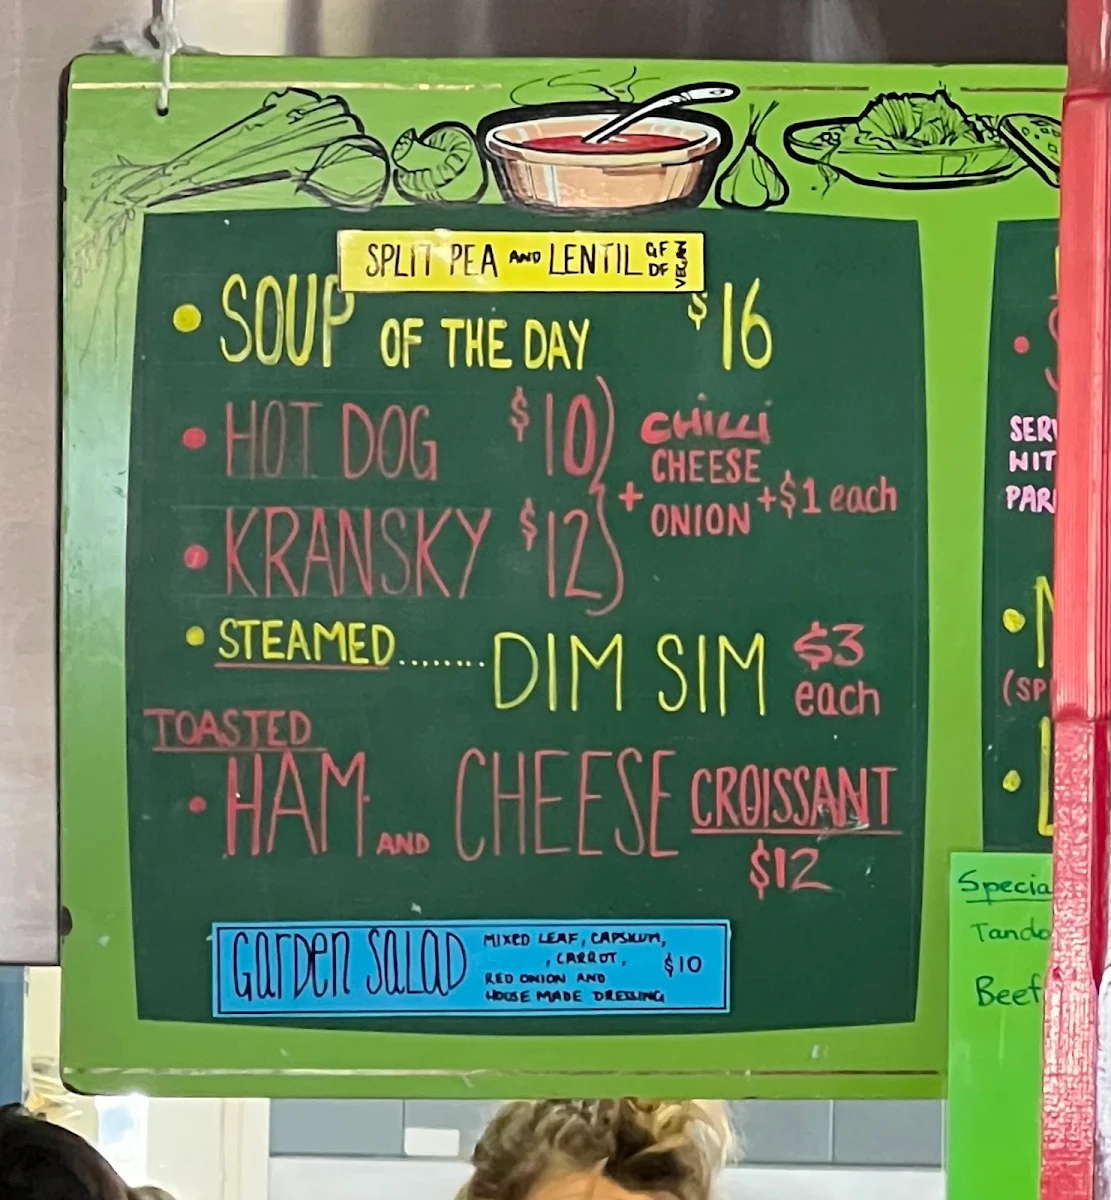 SPLIT PEA AND LENTIL GF DF VEGAN
• SOUP OF THE DAY $16
• HOT DOG $10
• KRANSKY $12
+ CHILLI
CHEESE
ONION +$1 each
• STEAMED........DIM SIM $3 each
TOASTED
• HAM AND CHEESE CROISSANT
$12
Garden Salad
MIXED LEAF, CAPSICUM,
, CARROT,
RED ONION AND
HOUSE MADE DRESSING
$10
SER
WIT
PAR
(SP
Specia
Tando
Beef